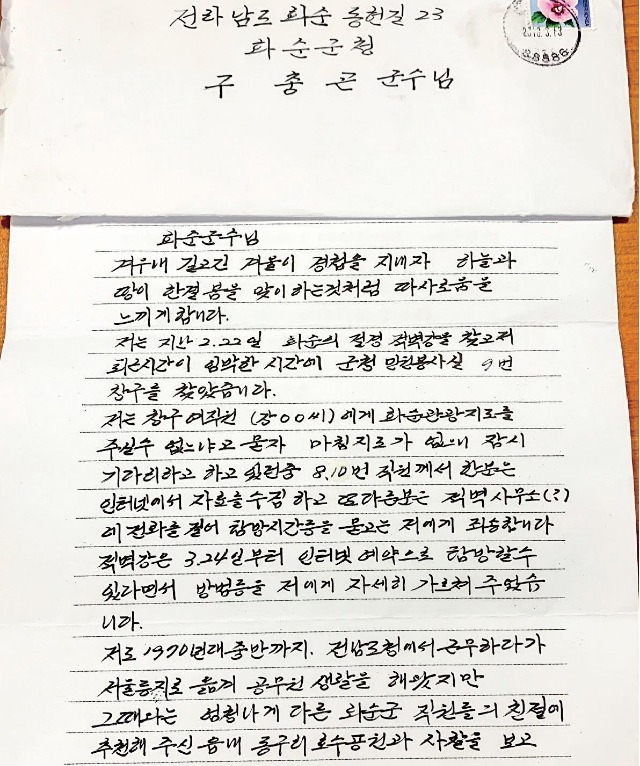 전라남도 화순 동헌길 23
화순군청
구 충 곤 군수님
2018.3.13
화순군수님
겨우내 길고긴 겨울이 경칩을 지내자 하늘과
땅이 한결 봄을 맞이하는것처럼 따사로움을
느끼게 합니다.
저는 지난 2.22일 화순의 절경 적벽강을 찾고저
퇴근시간이 임박한 시간에 군청 민원봉사실 9번
창구를 찾았습니다.
저는 창구 여직원 (강00씨)에게 화순관광지도를
주실수 없느냐고 묻자 마침지도가 없으니 잠시
기다리라고 하고 있던중 8.10번 직원께서 한분은
인터넷에서 자료를 수집하고 또다른분은 적벽사무소(?)
에 전화를 걸어 탐방시간등을 묻고는 저에게 죄송합니다
적벽강은 3.24일부터 인터넷 예약으로 탐방할수
있다면서 방법등을 저에게 자세히 가르쳐 주었습
니다.
저도 1970년대 중반까지. 전남도청에서 근무하다가
서울등지로 옮겨 공무원 생활을 해왔지만
그때와는 엄청나게 다른 화순군 직원들의 친절에
추천해 주신 읍내 동구리호수공원과 사찰을 보고